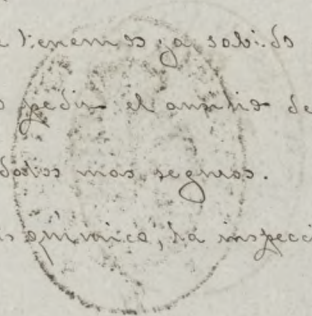 tenemos ya sabido
pedir el auxilio de
datos mas seguros.
químico, la inspecci